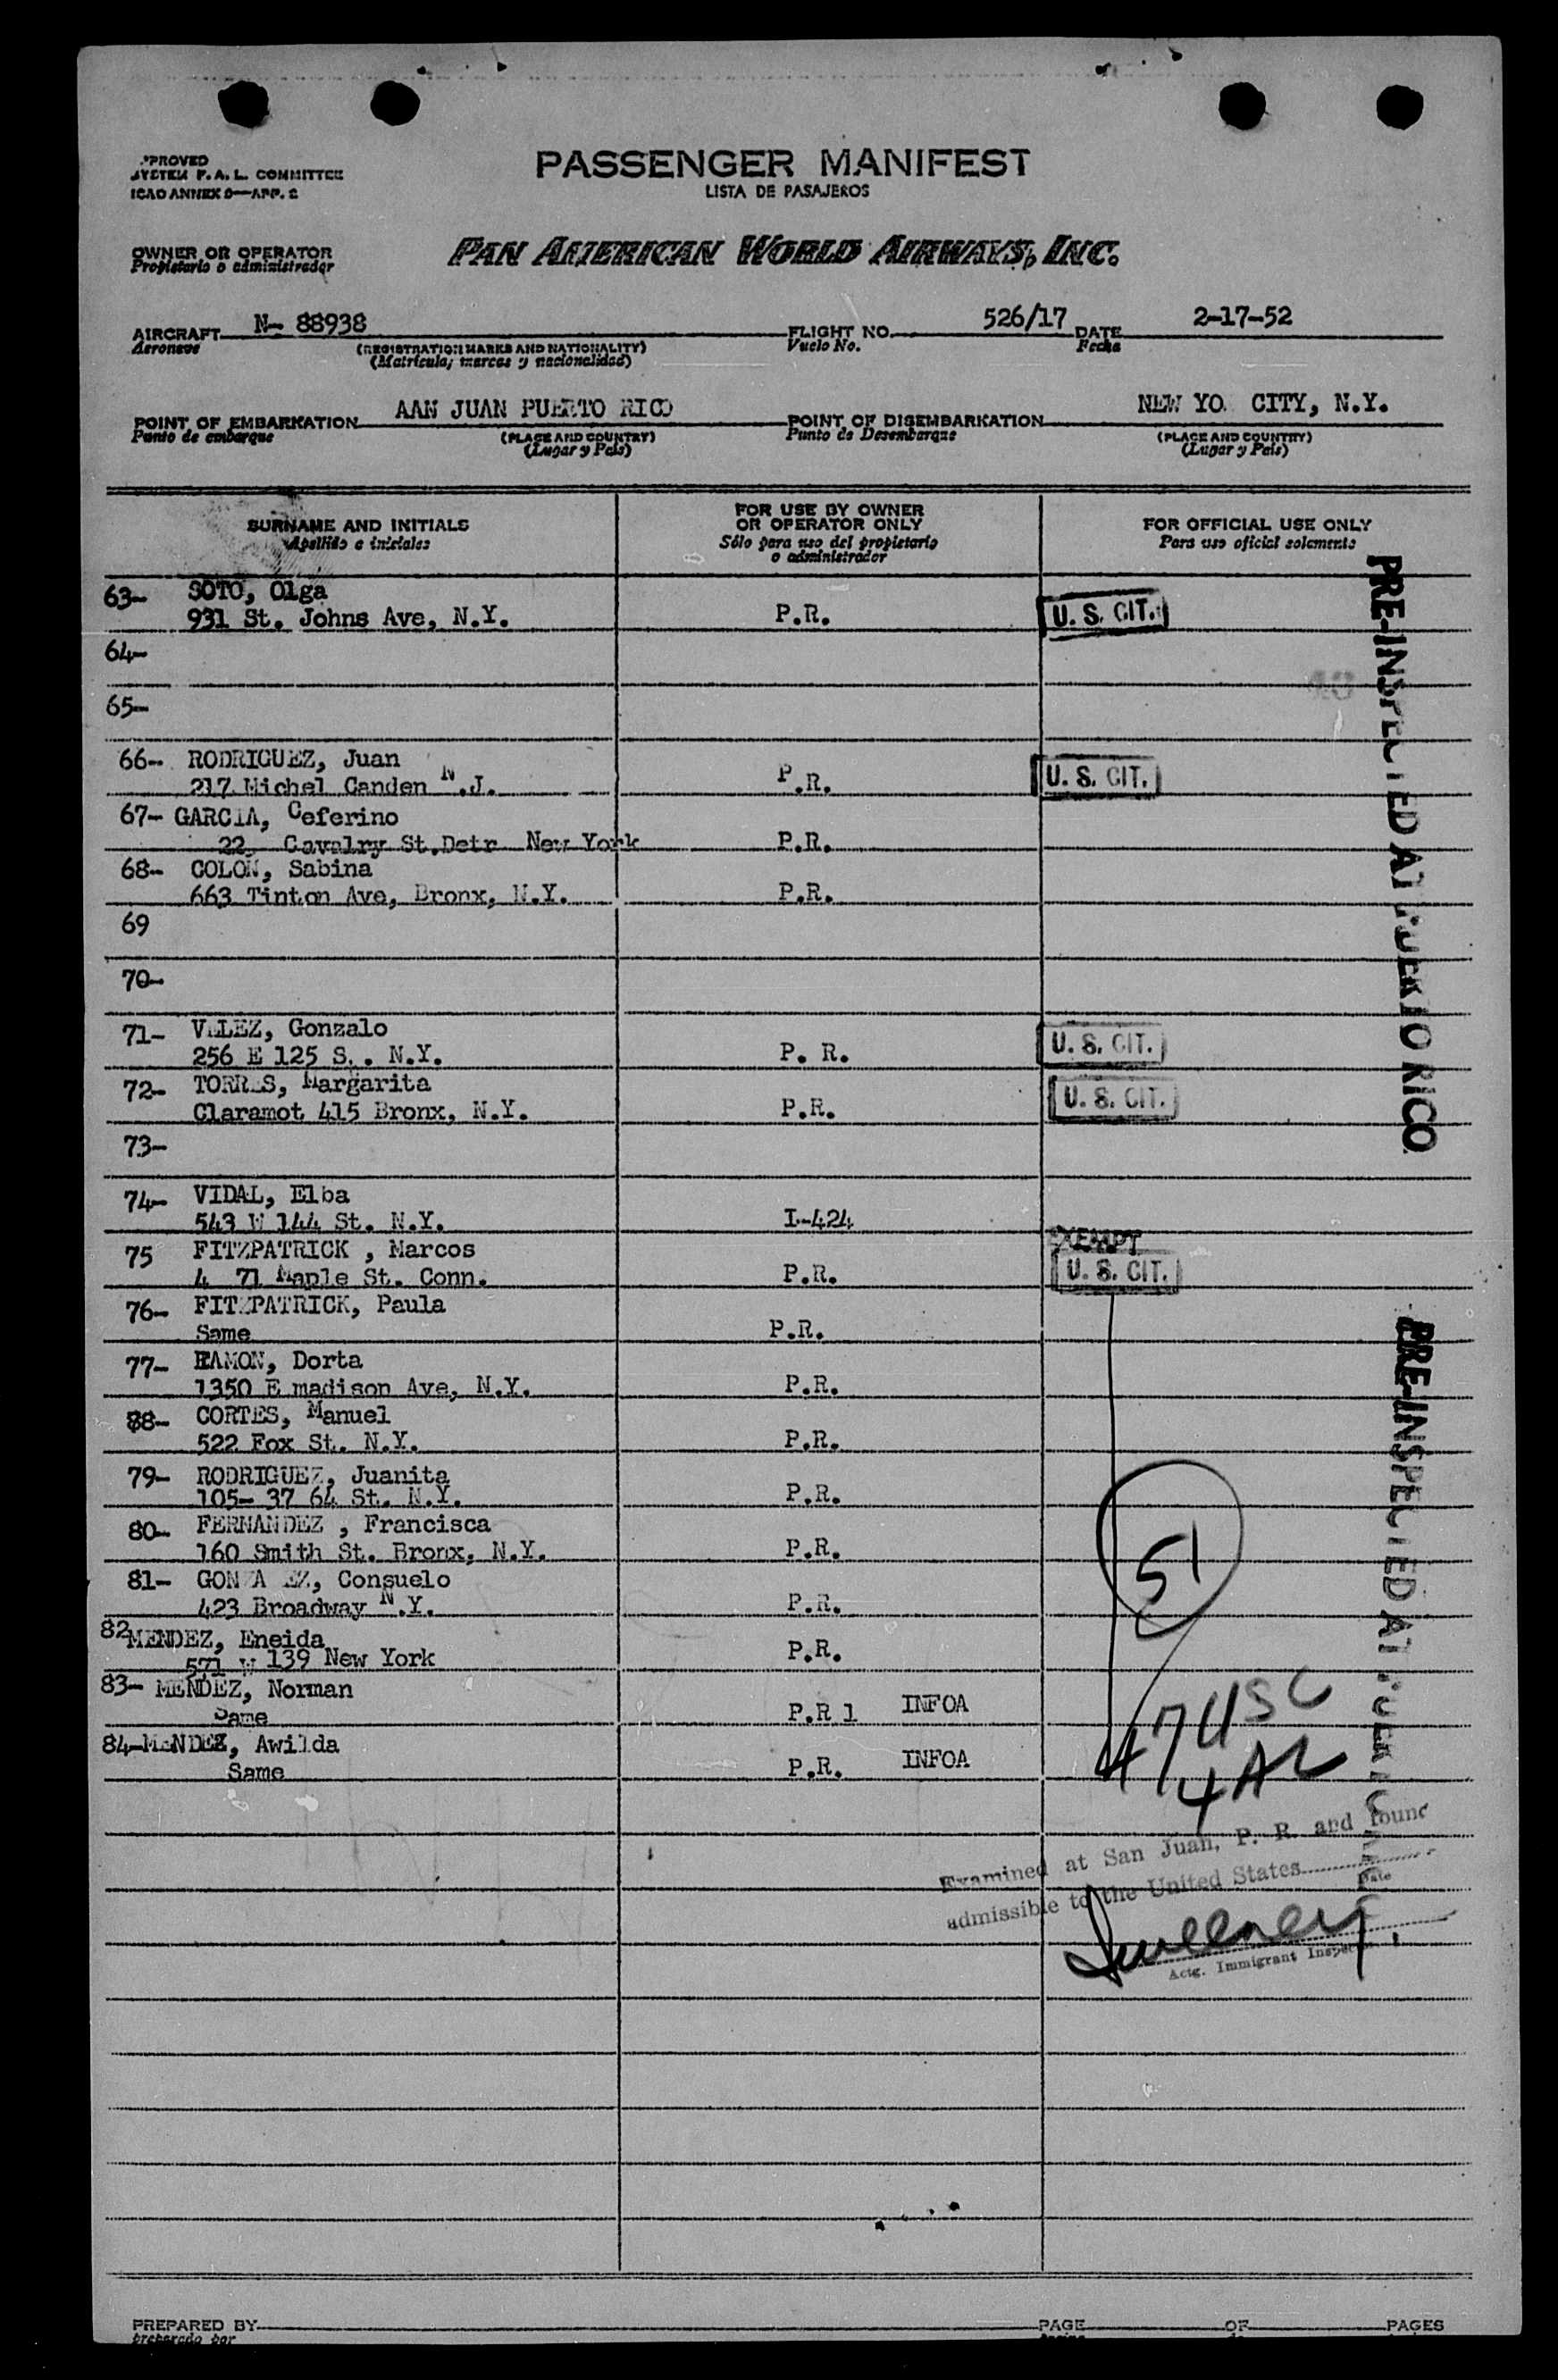 PROVED
SYSTEM F. A. L. COMMITTEE
ICAO ANNEX 9—APP. 2
PASSENGER MANIFEST
LISTA DE PASAJEROS
OWNER OR OPERATOR
Propietario o administrador
PAN AMERICAN WORLD AIRWAYS, INC.
AIRCRAFT N- 88938 FLIGHT NO. 526/17 DATE 2-17-52
Aeronave (REGISTRATION MARKS AND NATIONALITY) Vuelo No. Fecha
(Matrícula; marcas y nacionalidad)
POINT OF EMBARKATION AAN JUAN PUERTO RICO POINT OF DISEMBARKATION NEW YO CITY, N.Y.
Punto de embarque (PLACE AND COUNTRY) Punto de Desembarque (PLACE AND COUNTRY)
(Lugar y País) (Lugar y País)
SURNAME AND INITIALS
Apellido e iniciales
FOR USE BY OWNER
OR OPERATOR ONLY
Sólo para uso del propietario
o administrador
FOR OFFICIAL USE ONLY
Para uso oficial solamente
63- SOTO, Olga
931 St. Johns Ave, N.Y. P.R. U. S. CIT.
64-
65-
66- RODRIGUEZ, Juan
217 Michel Canden N.J. P.R. U. S. CIT.
67- GARCIA, Ceferino
22, Cavalry St.Detr New York P.R.
68- COLON, Sabina
663 Tinton Ave, Bronx, N.Y. P.R.
69
70-
71- VELEZ, Gonzalo
256 E 125 S. . N.Y. P. R. U. S. CIT.
72- TORRES, Margarita
Claramot 415 Bronx, N.Y. P.R. U. S. CIT.
73-
74- VIDAL, Elba
543 W 144 St. N.Y. I-424
75 FITZPATRICK , Marcos EXEMPT
4 71 Maple St. Conn. P.R. U. S. CIT.
76- FITZPATRICK, Paula
Same P.R.
77- RAMON, Dorta
1350 E madison Ave, N.Y. P.R.
88- CORTES, Manuel
522 Fox St. N.Y. P.R.
79- RODRIGUEZ, Juanita
105- 37 64 St. N.Y. P.R.
80- FERNANDEZ , Francisca
160 Smith St. Bronx, N.Y. P.R.
81- GONZA EZ, Consuelo
423 Broadway N.Y. P.R.
51
82 MENDEZ, Eneida
571 W 139 New York P.R.
83- MENDEZ, Norman
Same P.R 1 INFOA
84- MENDEZ, Awilda
Same P.R. INFOA
47USC
4AL
PRE-INSPECTED AT PUERTO RICO
PRE-INSPECTED AT PUERTO RICO
Examined at San Juan, P. R. and found
admissible to the United States
Date
Sweeney.
Actg. Immigrant Inspector
PREPARED BY PAGE OF PAGES
preparado por